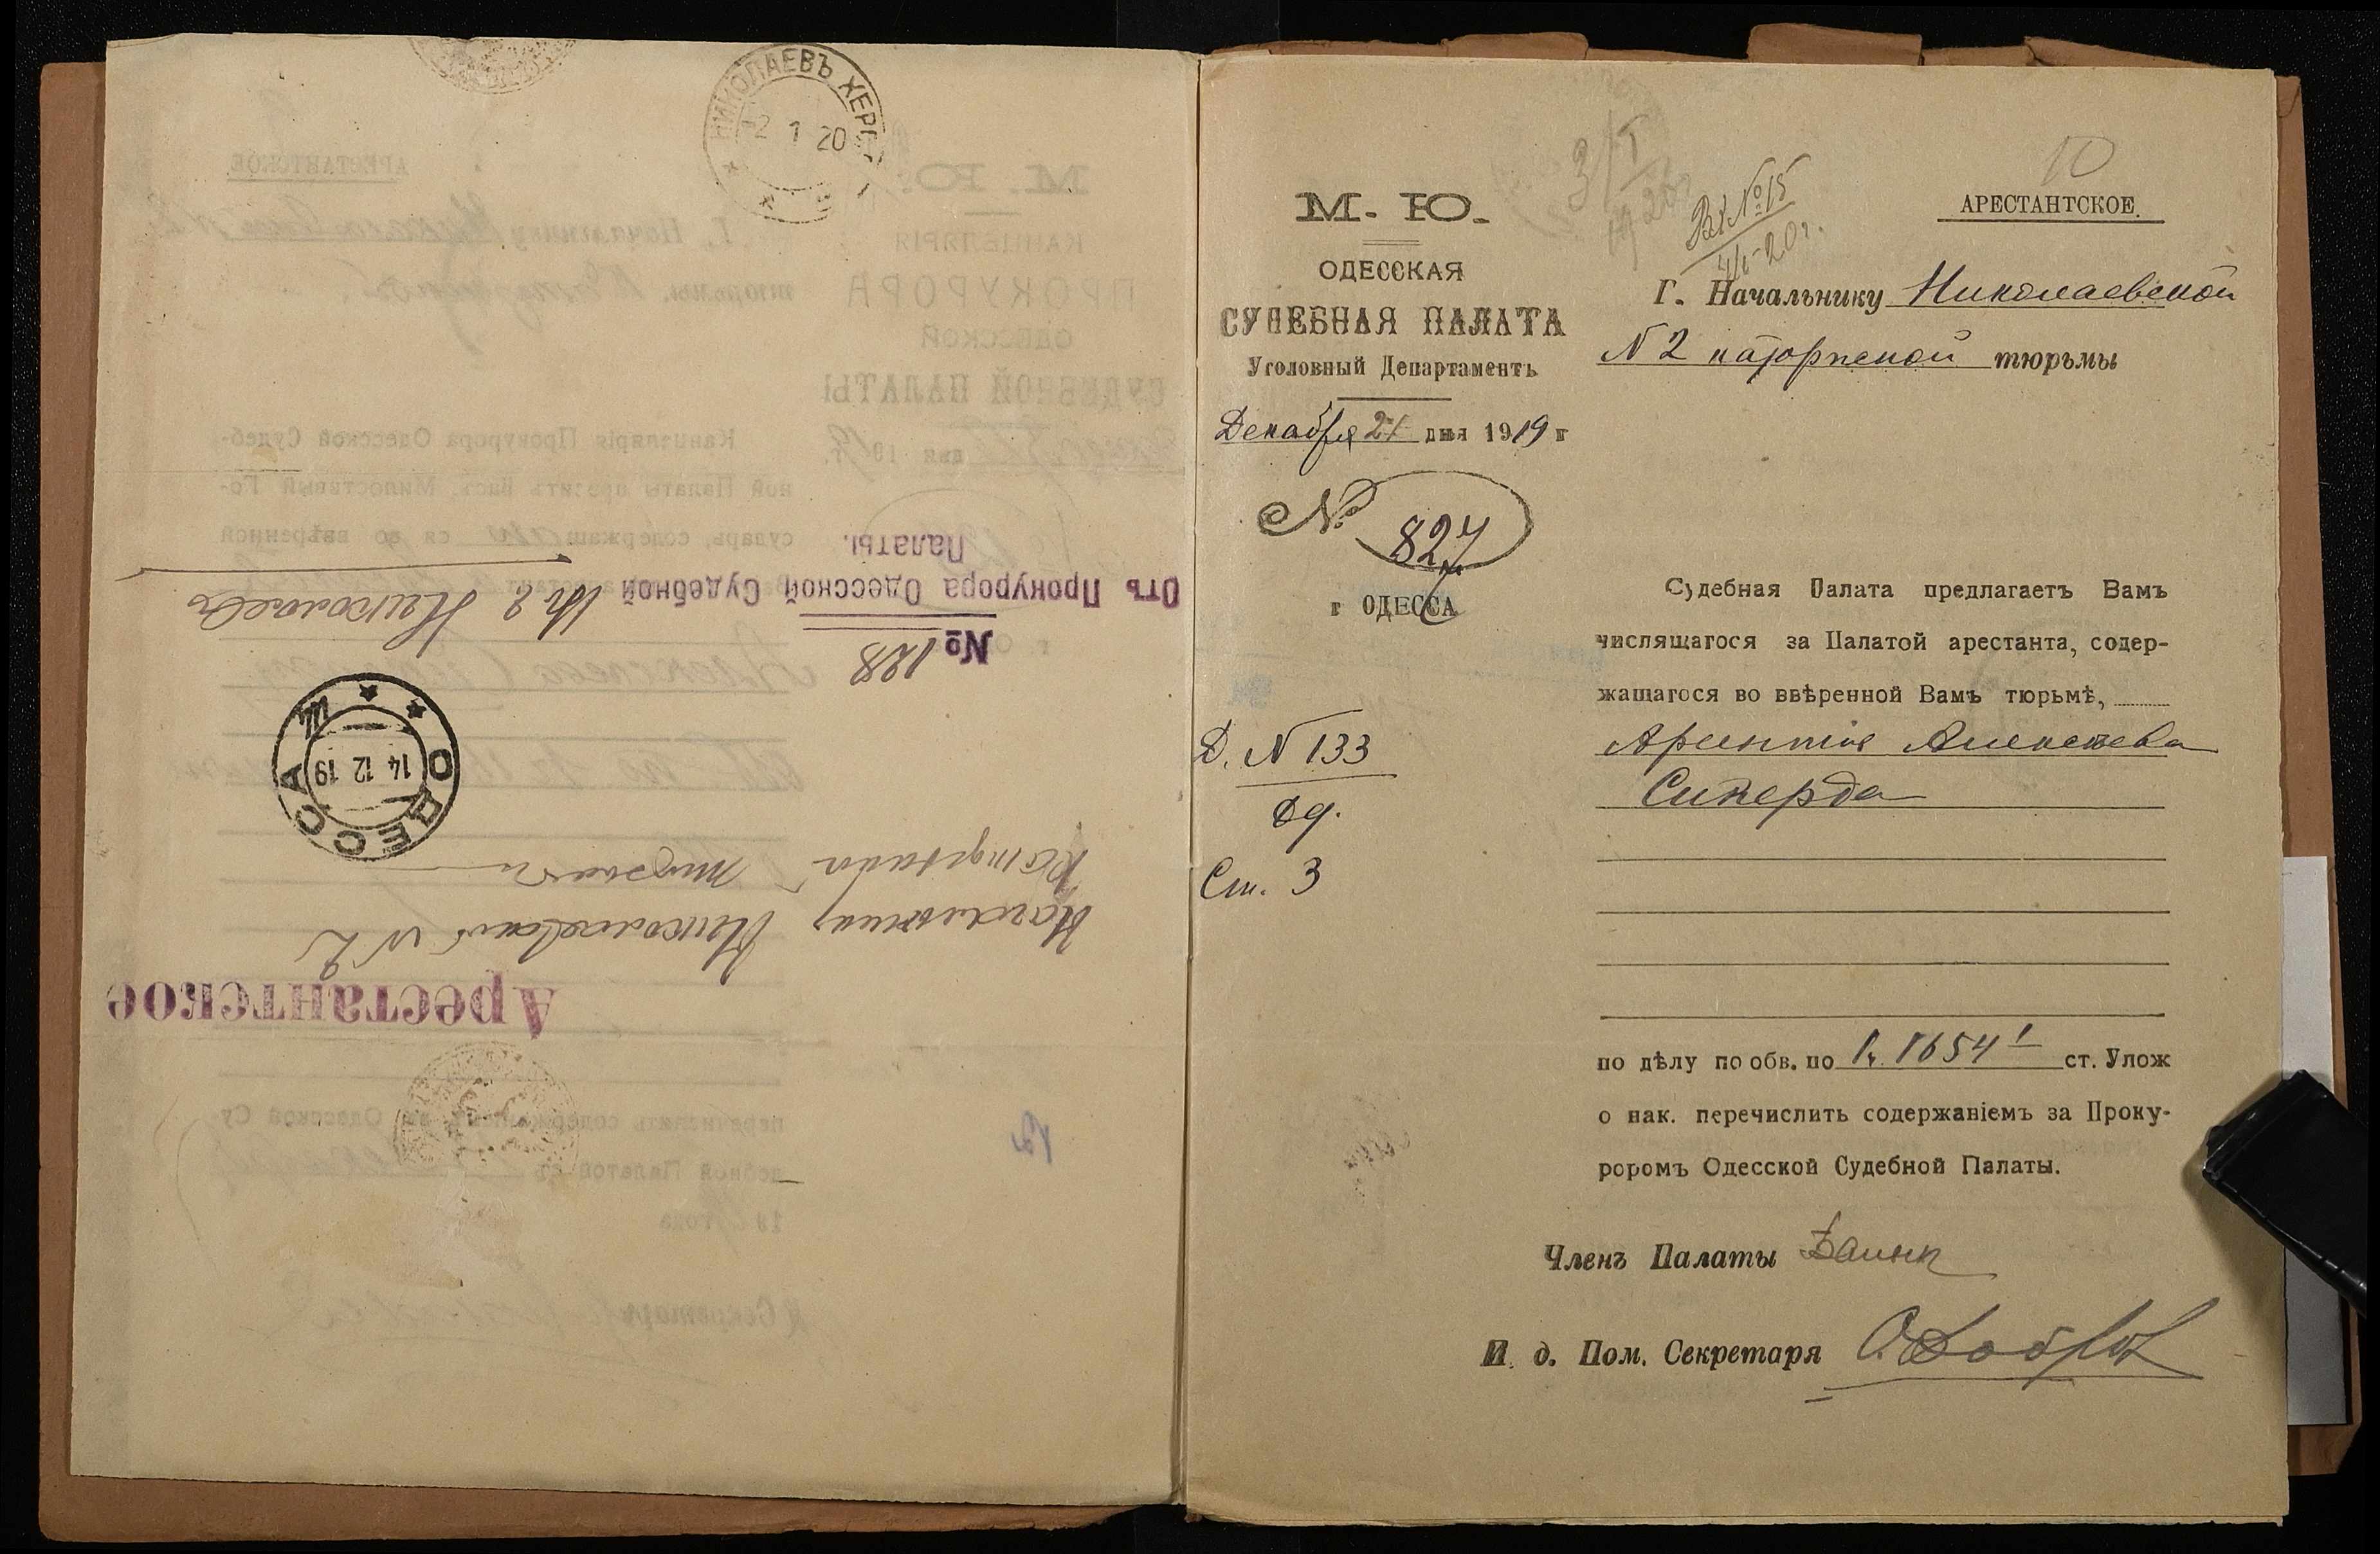 НИКОЛАЕВЪ ХЕРС.
2 1 20
Отъ Прокурора Одесской Судебной
Палаты.
№ 128
№ 2 Николаевъ
ОДЕССА
14 12 19
Арестантское
Начальнику Николаевской N 2
тюрьмы
12
10
М. Ю.
ОДЕССКАЯ
СУДЕБНАЯ ПАЛАТА
Уголовный Департаментъ
Декабря 21 дня 1919 г
№ 827
г ОДЕССА
Д. N 133
Ст. 3
Вх №15
АРЕСТАНТСКОЕ.
Г. Начальнику Николаевской
N 2 каторжной тюрьмы
Судебная Палата предлагаетъ Вамъ
числящагося за Палатой арестанта, содер-
жащагося во ввѣренной Вамъ тюрьмѣ,
Арсентія Алексѣева
Сикерда
по дѣлу по обв. по 1 ч. 1654 ¹ ст. Улож
о нак. перечислить содержаніемъ за Проку-
роромъ Одесской Судебной Палаты.
Членъ Палаты
И. д. Пом. Секретаря